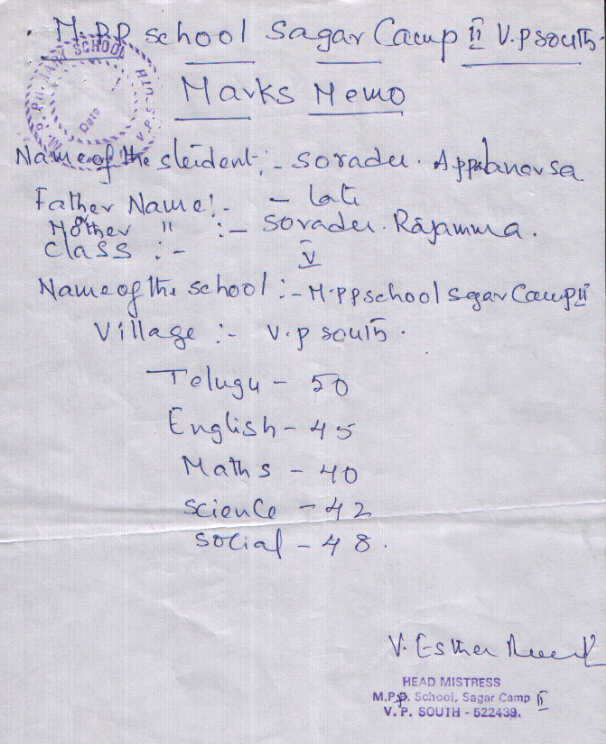 M.P.P school Sagar Camp II V.P South.
Marks Memo
SCHOOL
Date
V.P.S.
Name of the student :- Soradu. Appalanarsa
Father Name :- - late
or
Mother " :- Soradu. Rajamma.
Class :- V
Name of the school :- M.P.P school Sagar Camp II
Village :- V.P South.
Telugu - 50
English - 45
Maths - 40
Science - 42
Social - 48.
V. Esther
HEAD MISTRESS
M.P.P. School, Sagar Camp II
V. P. SOUTH - 522439.